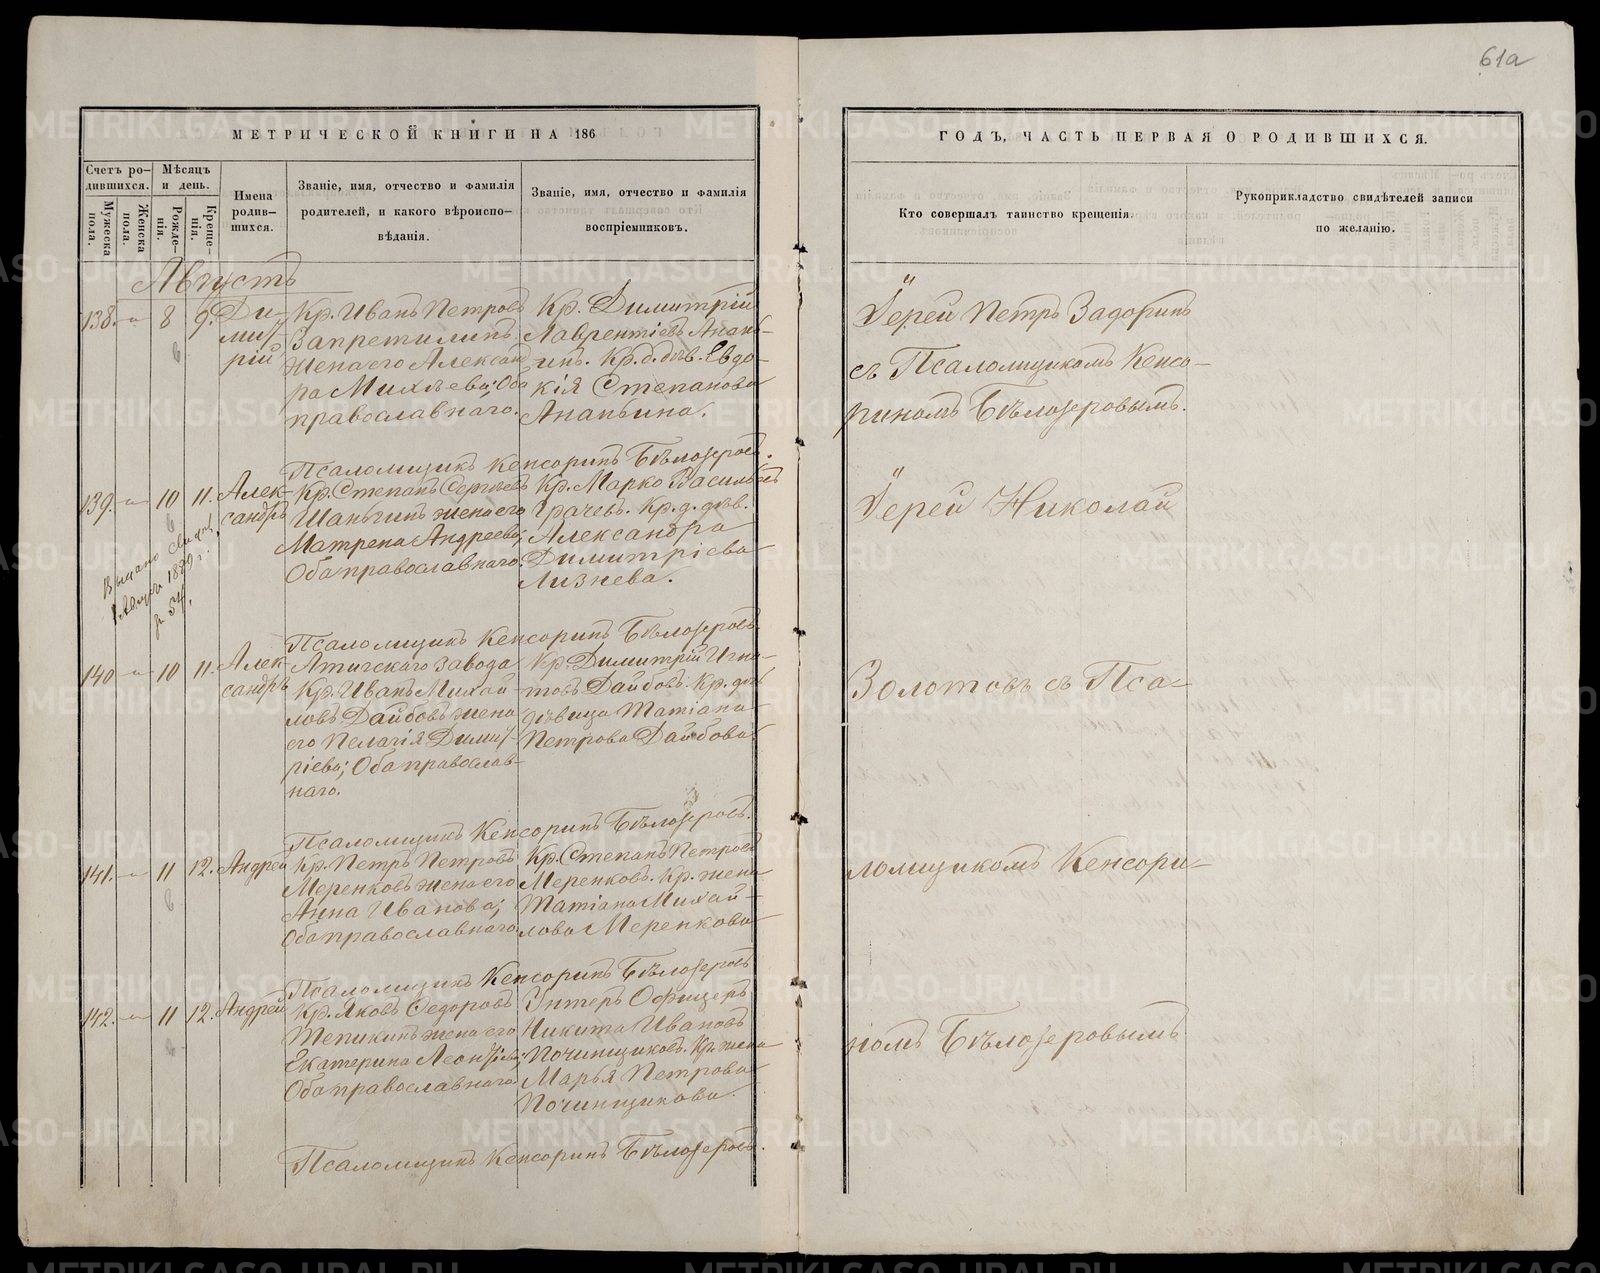 61а
МЕТРИЧЕСКОЙ КНИГИ НА 186
ГОДЪ, ЧАСТЬ ПЕРВАЯ О РОДИВШИХСЯ.
Счетъ ро-
дившихся.
Мужеска
пола.
Женска
пола.
Мѣсяцъ
и день.
Рожде-
нія.
Креще-
нія.
Имена
родив-
шихся.
Званіе, имя, отчество и фамилія
родителей, и какого вѣроиспо-
вѣданія.
Званіе, имя, отчество и фамилія
воспріемниковъ.
Кто совершалъ таинство крещенія.
Рукоприкладство свидѣтелей записи
по желанію.
Августъ
138. 8 9. Ди-
мит-
рій
Кр. Иванъ Петровъ
Запретилинъ
жена его Александ-
ра Михѣева; Оба
православнаго.
Кр. Димитрій
Лаврентіевъ Анань-
инъ. Кр. д. дѣв. Евдо-
кія Степанова
Ананьина.
Псаломщикъ Кенсоринъ Бѣлозеровъ.
139. 10 11. Алек-
сандръ
Кр. Степанъ Сергѣевъ
Шаньгинъ жена его
Матрена Андреева;
Оба православнаго.
Кр. Марко Васильевъ
Грачевъ. Кр. д. дѣв.
Александра
Димитріева
Лизнева.
Выдано свид.
54.
Псаломщикъ Кенсоринъ Бѣлозеровъ.
140 10 11. Алек-
сандръ
Атигскаго завода
Кр. Иванъ Михай-
ловъ Дайбовъ жена
его Пелагія Димит-
ріева; Оба православ-
наго.
Кр. Димитрій Игна-
товъ Дайбовъ. Кр. дѣв
дѣвица Татіана
Петрова Дайбова.
Псаломщикъ Кенсоринъ Бѣлозеровъ.
141. 11 12. Андрей
Кр. Петръ Петровъ
Меренковъ жена его
Анна Иванова;
Оба православнаго.
Кр. Степанъ Петровъ
Меренковъ. Кр. жена
Татіана Михай-
лова Меренкова
Псаломщикъ Кенсоринъ Бѣлозеровъ
142. 11 12. Андрей
Кр. Яковъ Ѳедоровъ
Тепикинъ жена его
Екатерина Леонтіева;
Оба православнаго.
Унтеръ Офицеръ
Никита Ивановъ
Починщиковъ. Кр. жена
Марья Петрова
Починщикова.
Псаломщикъ Кенсоринъ Бѣлозеровъ.
Іерей Петръ Задоринъ
съ Псаломщикомъ Кенсо-
риномъ Бѣлозеровымъ.
Іерей Николай
Золотовъ съ Пса-
ломщикомъ Кенсори-
номъ Бѣлозеровымъ
METRIKI.GASO-URAL.RU